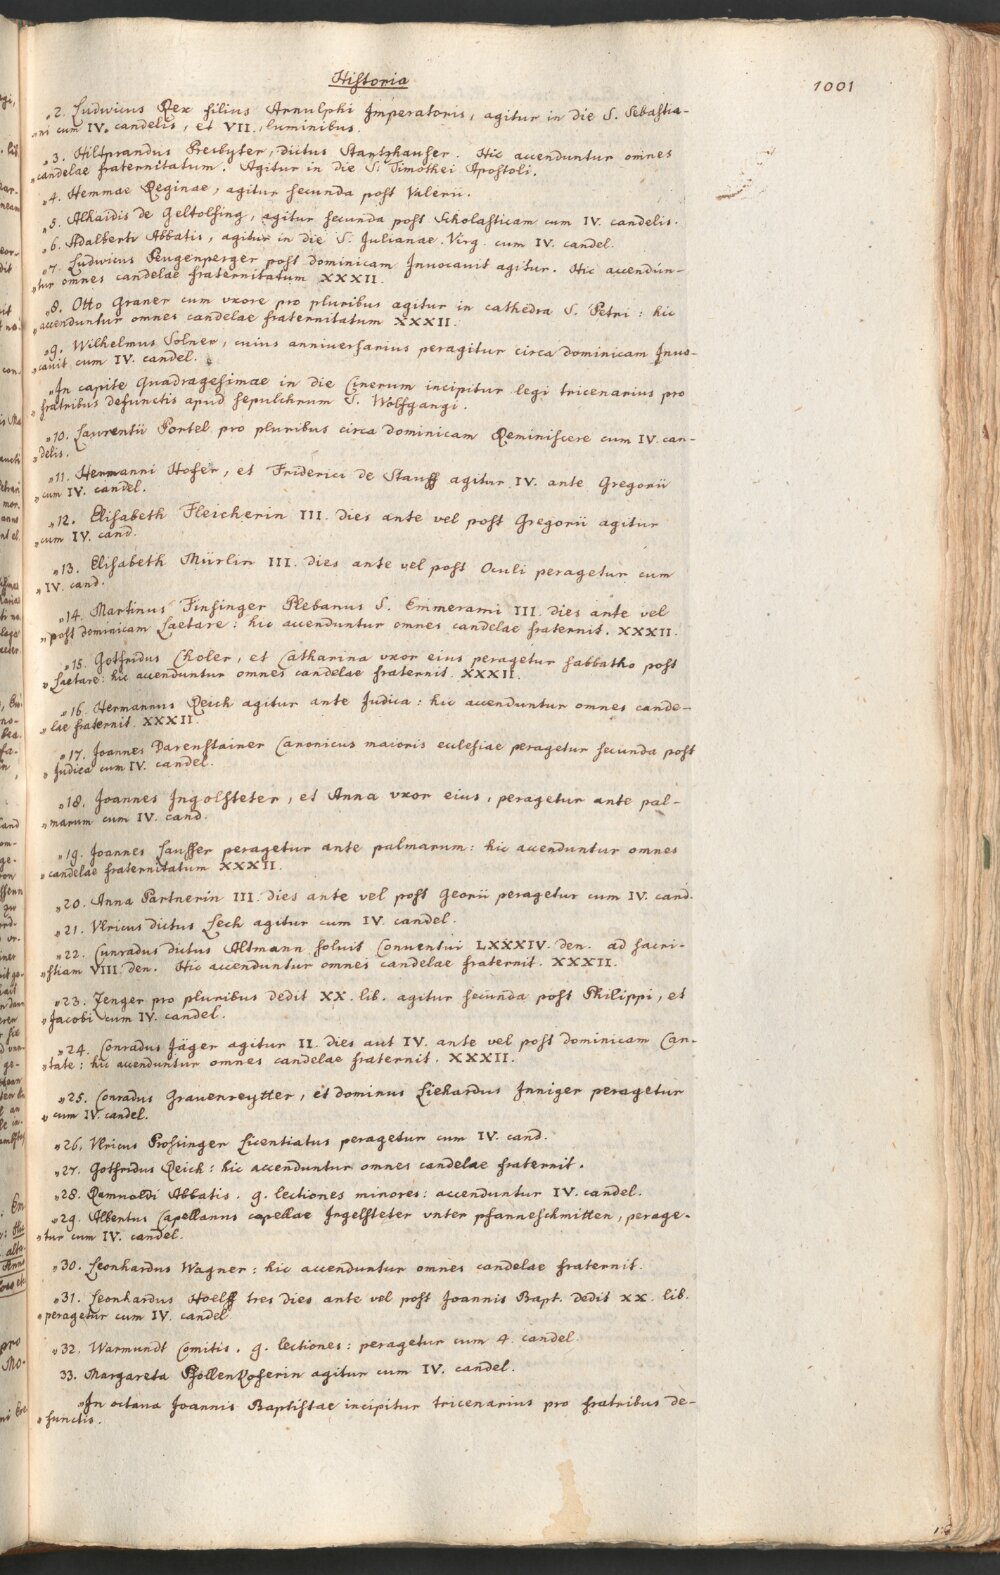 Historia
1001
„2. Ludwicus Rex filius Arnulphi Imperatoris, agitur in die S. Sebastia-
„ni cum IV. candelis, et VII. luminibus.
„3. Hiltprandus Presbyter, dictus Stantzhauser. Hic accenduntur omnes
„candelae fraternitatum. Agitur in die S. Timothei Apostoli.
„4. Hemmae Reginae, agitur secunda post Valerii.
„5. Alhaidis de Geltolfing, agitur secunda post Scholasticam cum IV. candelis.
„6. Adalberti Abbatis, agitur in die S. Julianae. Virg. cum IV. candel.
„7. Ludwicus Peugenperger post dominicam Inuocauit agitur. Hic accendun-
„tur omnes candelae fraternitatum XXXII.
„8. Otto Graner cum vxore pro pluribus agitur in cathedra S. Petri: hic
„accenduntur omnes candelae fraternitatum XXXII.
„9. Wilhelmus Solner, cuius anniuersarius peragitur circa dominicam Inuo-
„cauit cum IV. candel.
„In capite Quadragesimae in die Cinerum incipitur legi tricenarius pro
„fratribus defunctis apud sepulchrum S. Wolfgangi.
„10. Laurentii Portel pro pluribus circa dominicam Reminiscere cum IV. can-
„delis.
„11. Hermanni Hofer, et Friderici de Stauff agitur IV. ante Gregorii
„cum IV. candel.
„12. Elisabeth Fleicherin III. dies ante vel post Gregorii agitur
„cum IV. cand.
„13. Elisabeth Mürlin III. dies ante vel post Oculi peragetur cum
„IV. cand.
„14. Martinus Finsinger Plebanus S. Emmerami III. dies ante vel
„post dominicam Laetare: hic accenduntur omnes candelae fraternit. XXXII.
„15. Gotfridus Choler, et Catharina vxor eius peragetur sabbatho post
„Laetare: hic accenduntur omnes candelae fraternit. XXXII.
„16. Hermannus Reich agitur ante Judica: hic accenduntur omnes cande-
„lae fraternit. XXXII.
„17. Joannes Darenstainer Canonicus maioris ecclesiae peragetur secunda post
„Judica cum IV. candel.
„18. Joannes Ingolsteter, et Anna vxor eius, peragetur ante pal-
„marum cum IV. cand.
„19. Joannes Lausser peragetur ante palmarum: hic accenduntur omnes
„candelae fraternitatum XXXII.
„20. Anna Partnerin III. dies ante vel post Georii peragetur cum IV. cand.
„21. Vlricus dictus Lech agitur cum IV. candel.
„22. Cunradus dictus Altmann soluit Conuentui LXXXIV. den. ad sacri-
„stiam VIII. den. Hic accenduntur omnes candelae fraternit. XXXII.
„23. Zenger pro pluribus dedit XX. lib. agitur secunda post Philippi, et
„Jacobi cum IV. candel.
„24. Conradus Jäger agitur II. dies aut IV. ante vel post dominicam Can-
„tate: hic accenduntur omnes candelae fraternit. XXXII.
„25. Conradus Grauenreytter, et dominus Liehardus Inniger peragetur
„cum IV. candel.
„26. Vlricus Prossinger Licentiatus peragetur cum IV. cand.
„27. Gotfridus Reich: hic accenduntur omnes candelae fraternit.
„28. Ramnoldi Abbatis. 9. lectiones minores: accenduntur IV. candel.
„29. Albertus Capellanus capellae Ingelsteter vnter pfanneschmitten, perage-
„tur cum IV. candel.
„30. Leonhardus Wagner: hic accenduntur omnes candelae fraternit.
„31. Leonhardus Hoelff tres dies ante vel post Joannis Bapt. dedit XX. lib.
„peragetur cum IV. candel.
„32. Warmundt Comitis. 9. lectiones: peragetur cum 4. candel.
33. Margareta Pfollenkoferin agitur cum IV. candel.
„In octaua Joannis Baptistae incipitur tricenarius pro fratribus de-
„functis.